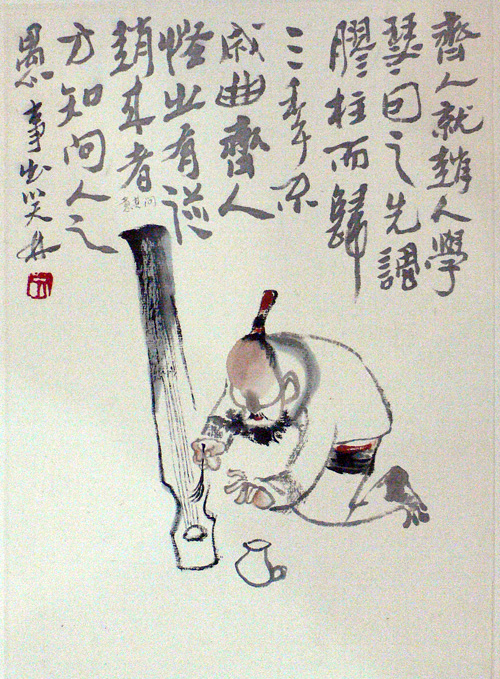 齊人就趙人學
瑟因之先調
膠柱而歸
三年不
成曲齊人
怪之有從
趙來者
問其意
方知向人之
愚事出笑林